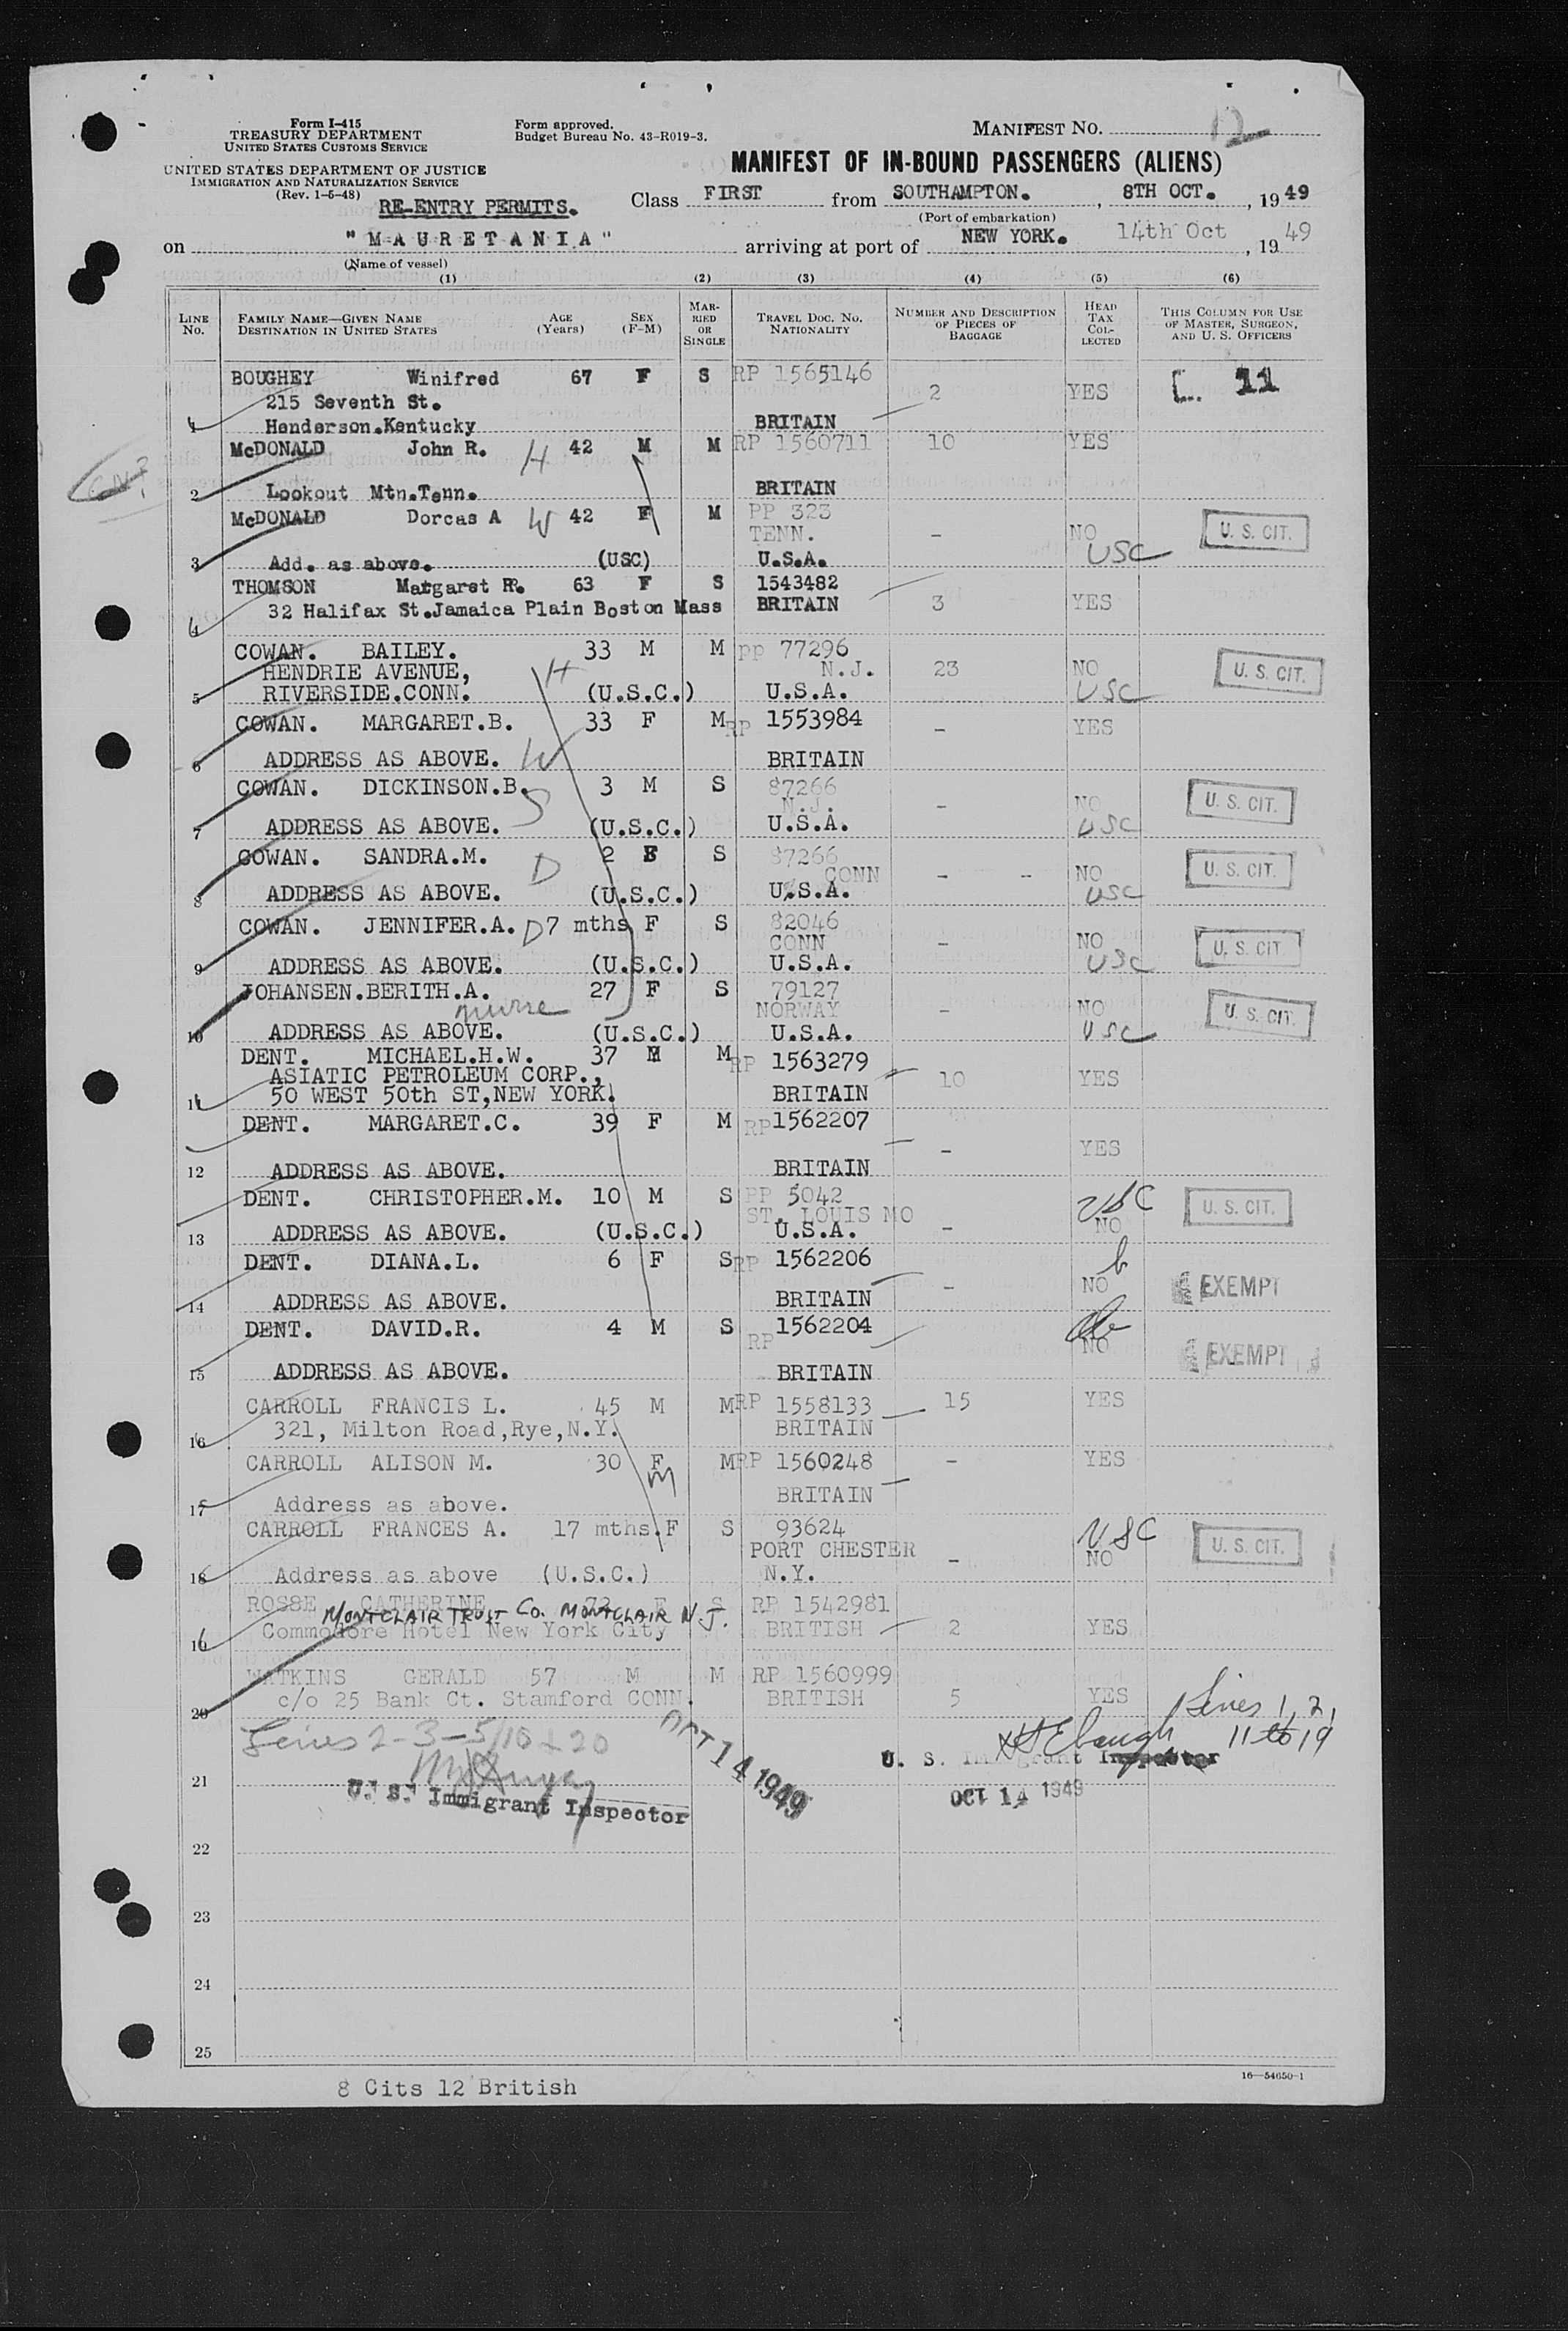 Form I-415
TREASURY DEPARTMENT
UNITED STATES CUSTOMS SERVICE
UNITED STATES DEPARTMENT OF JUSTICE
IMMIGRATION AND NATURALIZATION SERVICE
(Rev. 1-5-48)
RE-ENTRY PERMITS.
Form approved.
Budget Bureau No. 43-R019-3.
MANIFEST No. 12
MANIFEST OF IN-BOUND PASSENGERS (ALIENS)
Class FIRST from SOUTHAMPTON. , 8TH OCT. , 1949
(Port of embarkation)
on "MAURETANIA" arriving at port of NEW YORK. 14th Oct , 1949
(Name of vessel)
(1) (2) (3) (4) (5) (6)
LINE No. FAMILY NAME—GIVEN NAME DESTINATION IN UNITED STATES AGE (Years) SEX (F-M) MARRIED OR SINGLE TRAVEL DOC. NO. NATIONALITY NUMBER AND DESCRIPTION OF PIECES OF BAGGAGE HEAD TAX COLLECTED THIS COLUMN FOR USE OF MASTER, SURGEON, AND U. S. OFFICERS
BOUGHEY Winifred 67 F S RP 1565146 2 YES 11
215 Seventh St.
1 Henderson.Kentucky BRITAIN
McDONALD John R. H 42 M M RP 1560711 10 YES
2 Lookout Mtn.Tenn. BRITAIN
McDONALD Dorcas A W 42 F M PP 323 TENN. - NO USC U. S. CIT.
3 Add. as above. (USC) U.S.A.
THOMSON Margaret R. 63 F S 1543482
4 32 Halifax St.Jamaica Plain Boston Mass BRITAIN 3 YES
COWAN. BAILEY. H 33 M M PP 77296
HENDRIE AVENUE, N.J. 23 NO U. S. CIT.
5 RIVERSIDE.CONN. (U.S.C.) U.S.A. USC
COWAN. MARGARET.B. 33 F M RP 1553984 - YES
6 ADDRESS AS ABOVE. W BRITAIN
COWAN. DICKINSON.B. S 3 M S 87266 N.J. - NO U. S. CIT.
7 ADDRESS AS ABOVE. (U.S.C.) U.S.A. USC
COWAN. SANDRA.M. D 2 F S 87266 CONN - - NO U. S. CIT.
8 ADDRESS AS ABOVE. (U.S.C.) U.S.A. USC
COWAN. JENNIFER.A. D 7 mths F S 82046 CONN - NO U. S. CIT
9 ADDRESS AS ABOVE. (U.S.C.) U.S.A. USC
JOHANSEN.BERITH.A. 27 F S 79127 NORWAY - NO U. S. CIT.
nurse
10 ADDRESS AS ABOVE. (U.S.C.) U.S.A. USC
DENT. MICHAEL.H.W. 37 M M RP 1563279
ASIATIC PETROLEUM CORP., 10 YES
11 50 WEST 50th ST,NEW YORK. BRITAIN
DENT. MARGARET.C. 39 F M RP 1562207 - YES
12 ADDRESS AS ABOVE. BRITAIN
DENT. CHRISTOPHER.M. 10 M S PP 5042 ST. LOUIS MO USC U. S. CIT.
13 ADDRESS AS ABOVE. (U.S.C.) U.S.A. - NO
DENT. DIANA.L. 6 F S RP 1562206 - NO EXEMPT
14 ADDRESS AS ABOVE. BRITAIN
DENT. DAVID.R. 4 M S RP 1562204 NO EXEMPT
15 ADDRESS AS ABOVE. BRITAIN
CARROLL FRANCIS L. 45 M M RP 1558133 15 YES
16 321, Milton Road,Rye,N.Y. BRITAIN
CARROLL ALISON M. 30 F M RP 1560248 - YES
m
17 Address as above. BRITAIN
CARROLL FRANCES A. 17 mths.F S 93624 USC
PORT CHESTER - NO U. S. CIT.
18 Address as above (U.S.C.) N.Y.
ROSSE CATHERINE 73 F S RP 1542981
MONTCLAIR TRUST CO. MONTCLAIR N.J.
19 Commodore Hotel New York City BRITISH 2 YES
WATKINS GERALD 57 M M RP 1560999
20 c/o 25 Bank Ct. Stamford CONN. BRITISH 5 YES
Lines 1, 2, 11 to 19
Lines 2-3-5/10 & 20
OCT 14 1949
U. S. Immigrant Inspector
21
U. S. Immigrant Inspector
OCT 14 1949
22
23
24
25
8 Cits 12 British
16—54650-1